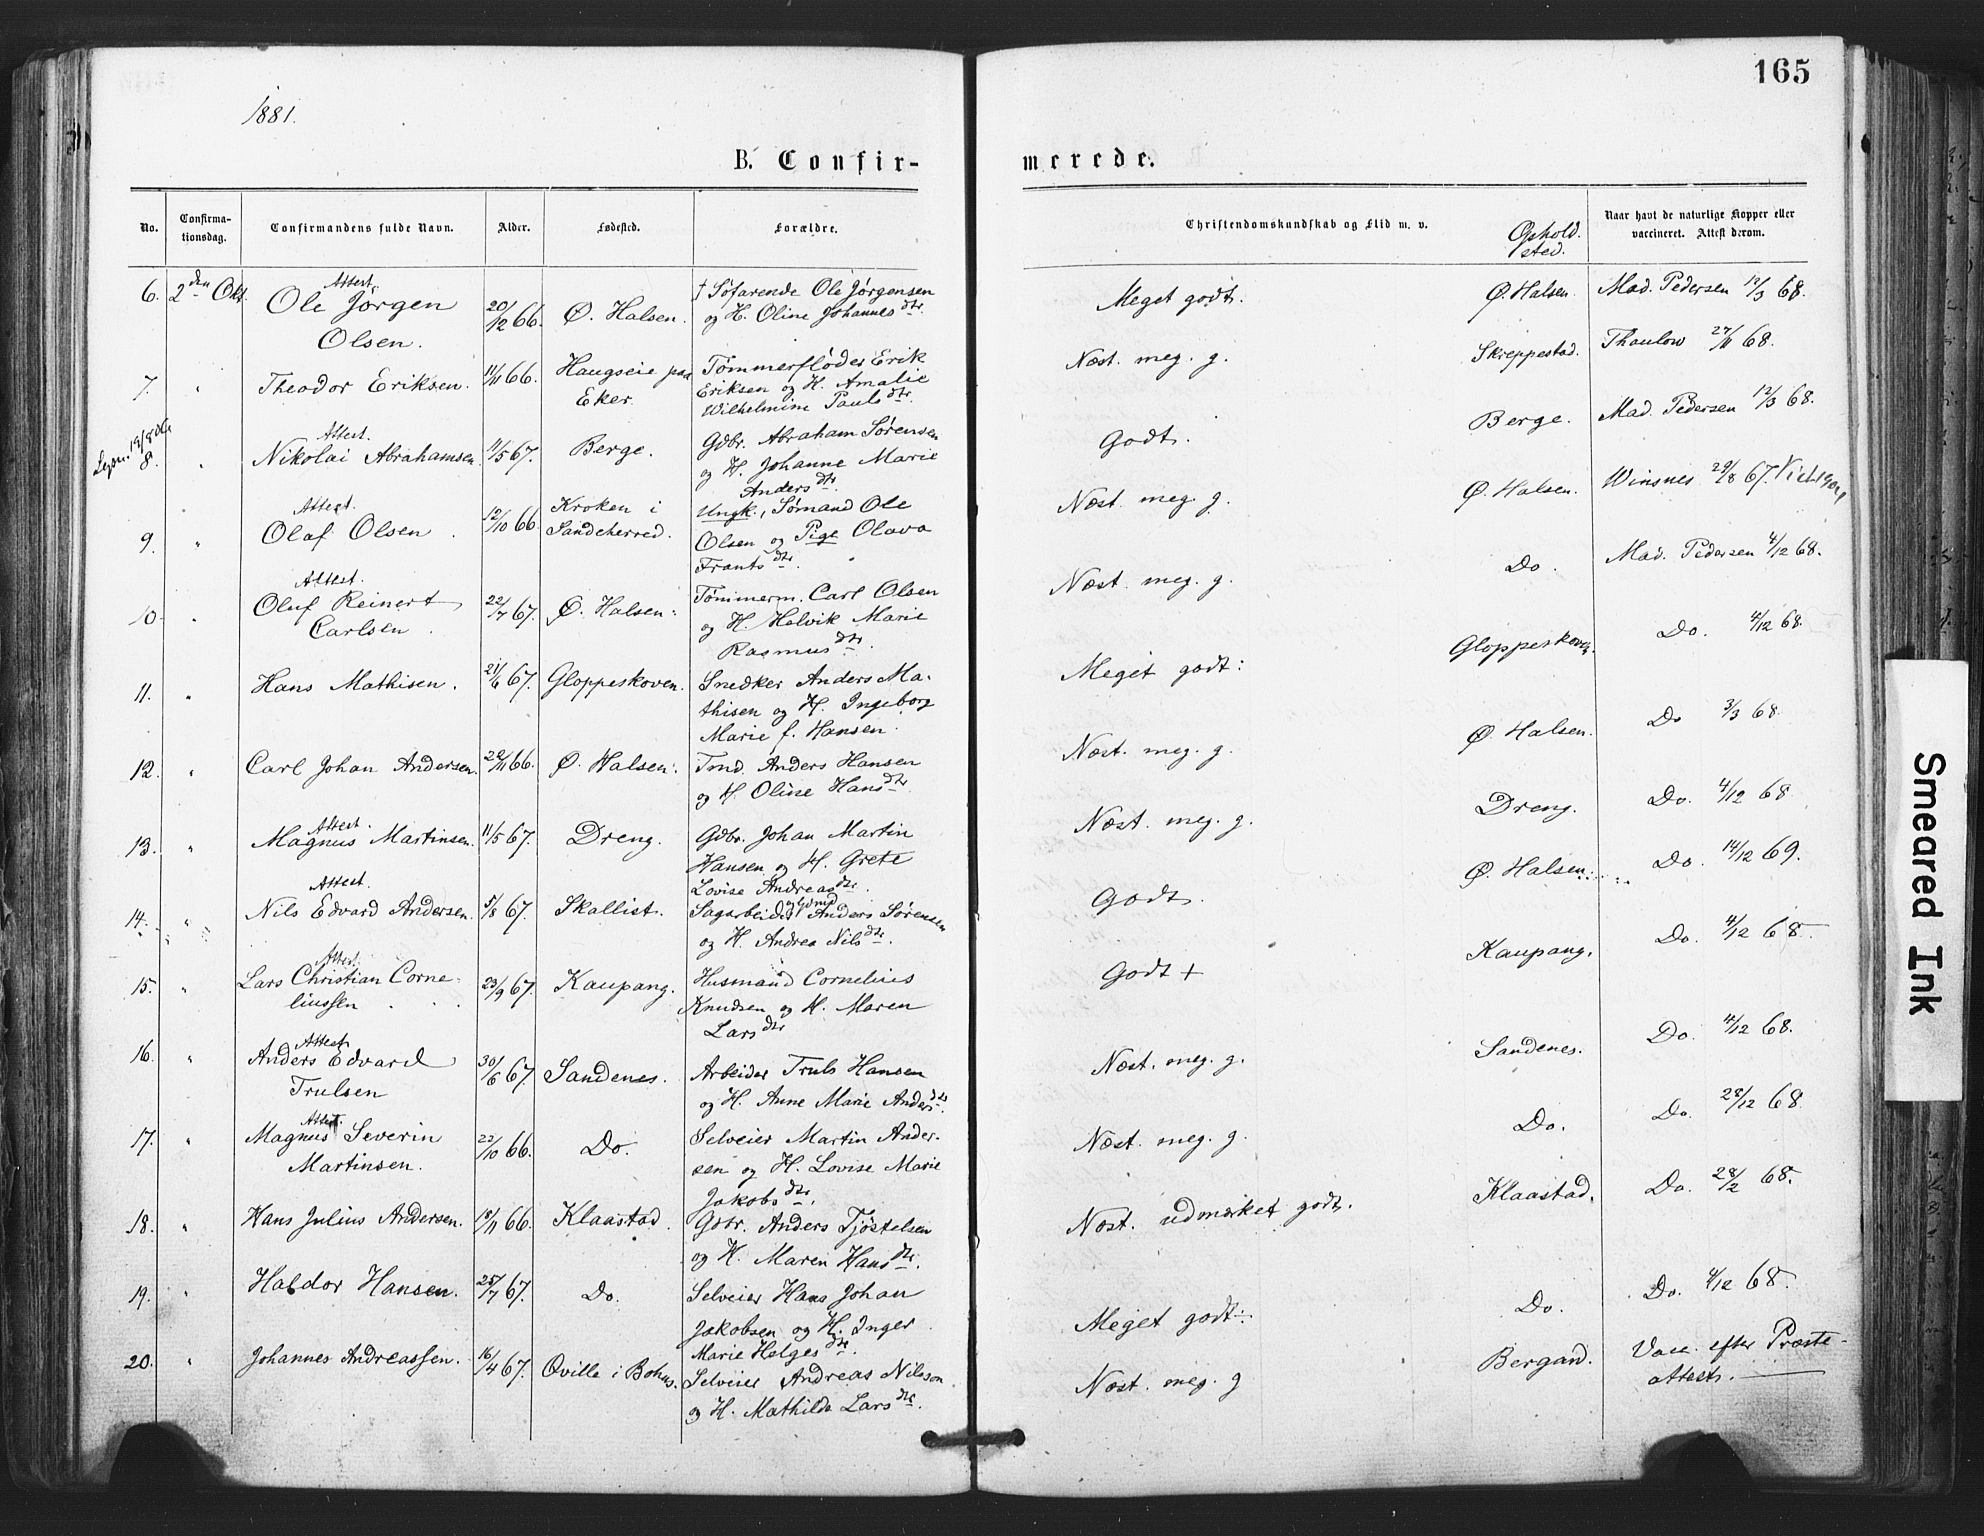 165
1881.
B. Confir-
merede.
No.
Confirma-
tionsdag.
Confirmandens fulde Navn.
Alder.
Fødested.
Forældre.
Christendomskundskab og Flid m. v.
Ophold.
sted.
Naar havt de naturlige Kopper eller
vaccineret. Attest derom.
6. 2den Okt. Attest. Ole Jørgen 20/12 66. Ø. Halsen. † Søfarende Ole Jørgensen Meget godt. Ø. Halsen. Mad. Pedersen 12/3 68.
Olsen. og H. Oline Johannesdtr
7. " Theodor Eriksen. 11/11 66. Haugseie paa Tømmerfløder Erik Næst. meg. g. Skreppestad. Thaulow 27/11 68.
Eker. Eriksen og H. Amalie
Wilhelmine Paulsdtr.
8. " Attest. Nikolai Abrahamsen. 11/5 67. Berge. Gdbr. Abraham Sørensen Godt. Berge. Mad. Pedersen 12/3 68.
og H. Johanne Marie
Andersdtr.
9. " Attest. Olaf Olsen. 12/10 66. Kroken i Ungk., Sømand Ole Næst. meg. g. Ø. Halsen. Winsnes 29/8 67.
Sandeherred. Olsen og Pige Olava
Frantsdtr.
10. " Attest. Oluf Reinert 22/7 67. Ø. Halsen. Tømmerm. Carl Olsen Næst. meg. g. Do. Mad. Pedersen 4/12 68.
Carlsen. og H. Helvik Marie
Rasmusdtr.
11. " Hans Mathisen. 21/6 67. Gloppeskoven. Snedker Anders Ma- Meget godt: Gloppeskoven. Do. 4/12 68.
thisen og H. Ingeborg
Marie f. Hansen.
12. " Carl Johan Andersen. 22/11 66. Ø. Halsen. Tmd. Anders Hansen Næst. meg. g. Ø. Halsen. Do 3/3 68.
og H. Oline Hansdtr
13. " Attest. Magnus Martinsen. 11/5 67. Dreng. Gdbr. Johan Martin Næst. meg. g. Dreng. Do. 4/12 68
Hansen og H. Grete
Lovise Andreasdtr.
14. " Attest. Nils Edvard Andersen. 5/8 67. Skallist. Sagarbeider Anders Sørensen Godt. Ø. Halsen. Do. 14/12 69.
og H. Andrea Nilsdtr.
15. " Attest. Lars Christian Corne- 23/9 67. Kaupang. Husmand Cornelius Godt + Kaupang. Do. 4/12 68.
liussen Knudsen og H. Maren
Larsdtr
16. " Attest. Anders Edvard 30/6 67. Sandenes. Arbeider Truls Hansen Næst. meg. g. Sandenes. Do. 4/12 68.
Trulsen og H. Anne Marie Andersdtr.
17. " Attest. Magnus Severin 22/10 66. Do. Selveier Martin Ander- Næst. meg. g. Do. Do. 28/12 68
Martinsen. sen og H. Lovise Marie
Jakobsdtr.
18. " Hans Julius Andersen. 18/11 66. Klaastad. Gdbr. Anders Tjøstelsen Næst. udmærket godt. Klaastad. Do. 28/2 68.
og H. Maren Hansdtr.
19. " Haldor Hansen. 25/7 67. Do. Selveier Hans Johan Meget godt: Do. Do. 4/12 68.
Jakobsen og H. Inger
Marie Helgesdtr.
20. " Johannes Andreassen. 16/4 67. Qville i Bohus. Selveier Andreas Nilsson Næst. meg. g Bergan. Vacc. efter Præste-
og H. Mathilde Larsdtr. attest.
Smeared Ink